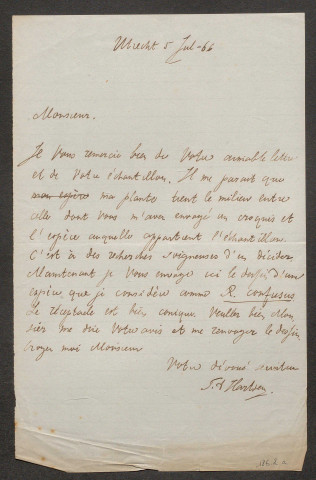 Utrecht 5 Jul-66
Monsieur.
Je Vous remercie bien de Votre aimable letre
et de Votre échantillon. Il me parait que
mon espèce ma plante tient le milieu entre
celle dont Vous m'avez envoyé un croquis et
l'espèce auquelle appartient l'échantillon.
C'est à des recherches soigneuses d'en décider.
Maintenant je Vous envoye ici le dessin d'une
espèce que je considère comme R. confusus
Le réceptacle est très conique. Veuillez bien Mon
sieur me dire Votre avis et me renvoyer le dessin
croyez moi Monsieur
Votre dévoué serviteur
Hartsen